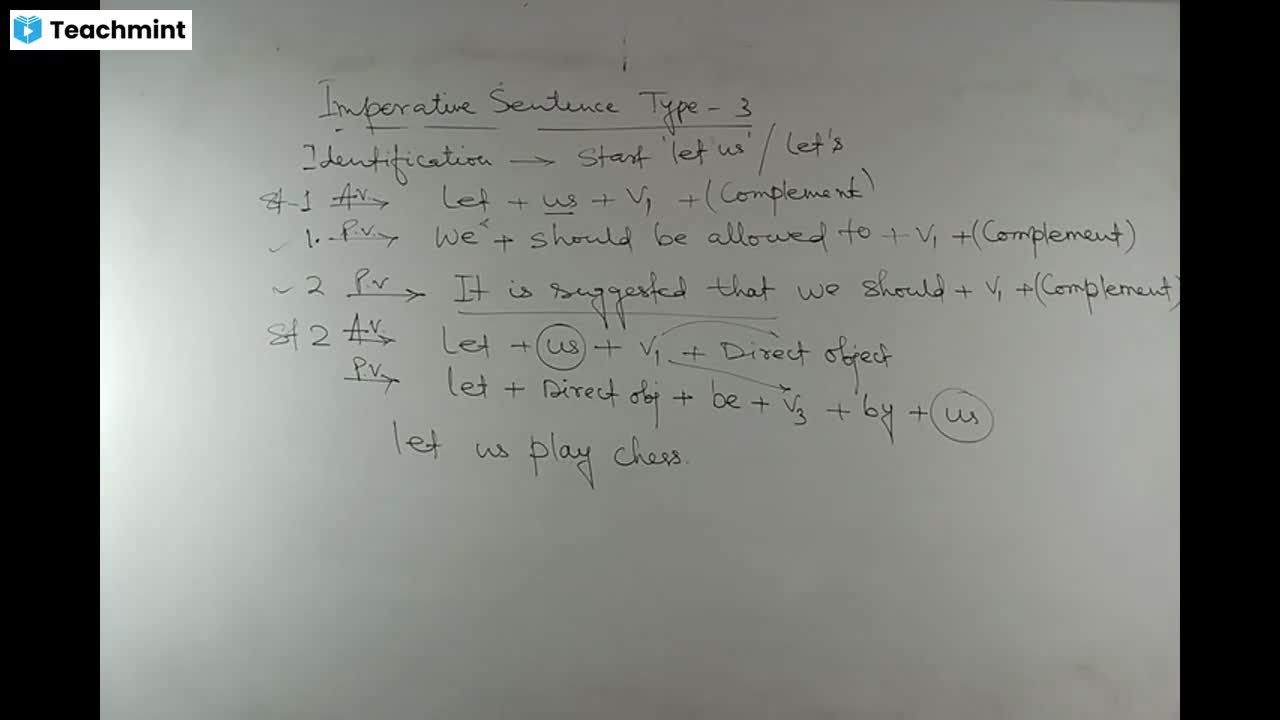 Teachmint
Imperative Sentence Type - 3
Identification → Start 'let us' / let's
St-1 A.V. → Let + us + V1 + (Complement)
1. P.V. → We + should be allowed to + V1 + (Complement)
2 P.V → It is suggested that we should + V1 + (Complement)
St 2 A.V. → Let + us + V1 + Direct object
P.V. → let + Direct obj + be + V3 + by + us
let us play chess.